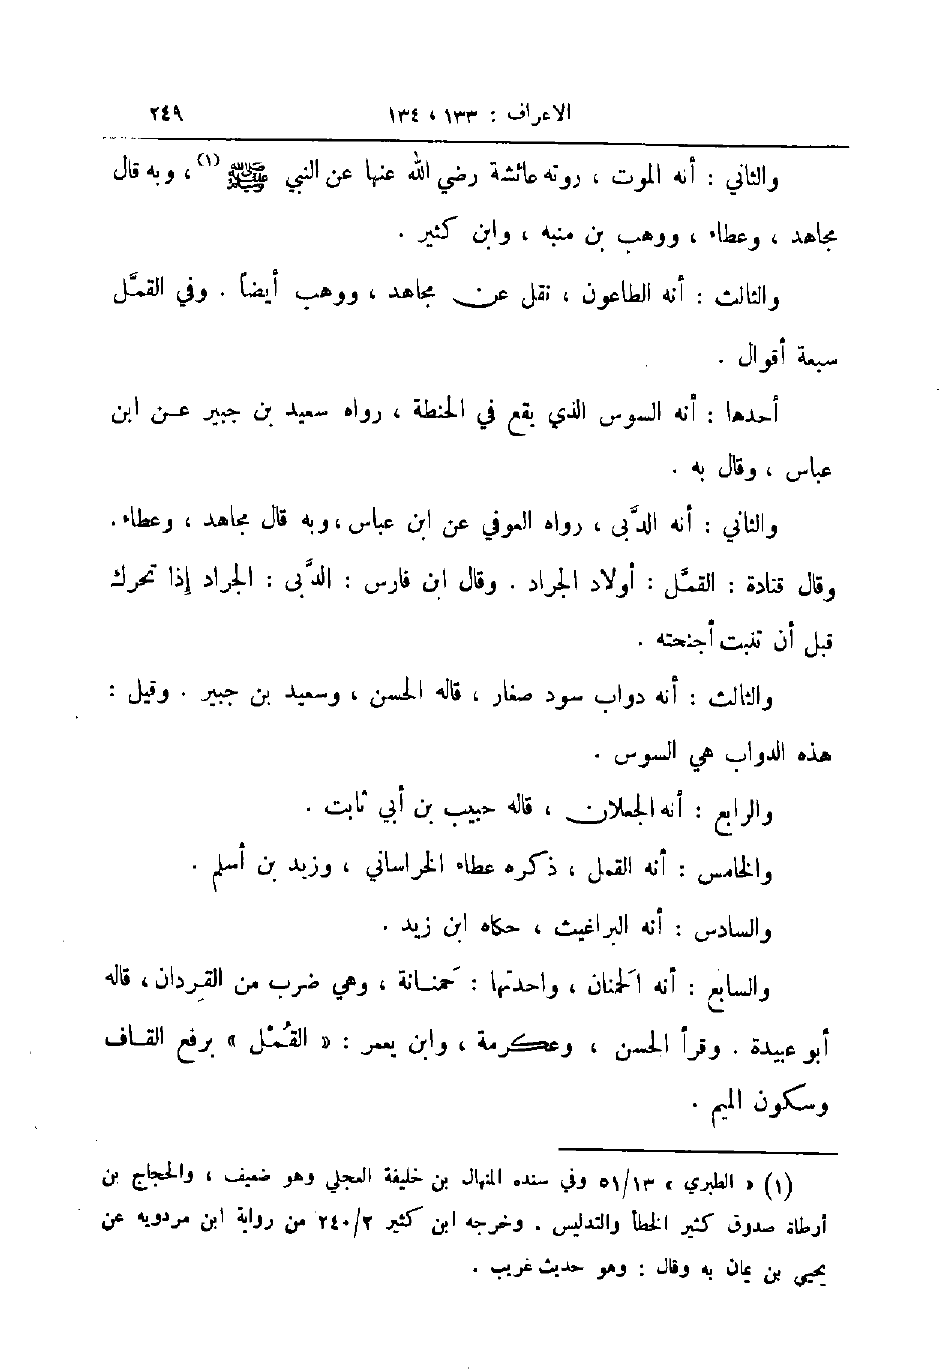 الاعراف : ١٣٣ ، ١٣٤ ٢٤٩
والثاني : أنه الموت ، روته عائشة رضي الله عنها عن النبي ﷺ (١) ، وبه قال
مجاهد ، وعطاء ، ووهب بن منبه ، وابن كثير .
والثالث : أنه الطاعون ، نقل عن مجاهد ، ووهب أيضاً . وفي القمَّل
سبعة أقوال .
أحدها : أنه السوس الذي يقع في الحنطة ، رواه سعيد بن جبير عن ابن
عباس ، وقال به .
والثاني : أنه الدَّبى ، رواه العوفي عن ابن عباس ، وبه قال مجاهد ، وعطاء .
وقال قتادة : القمَّل : أولاد الجراد . وقال ابن فارس : الدَّبى : الجراد إذا تحرك
قبل أن تنبت أجنحته .
والثالث : أنه دواب سود صغار ، قاله الحسن ، وسعيد بن جبير . وقيل :
هذه الدواب هي السوس .
والرابع : أنه الجعلان ، قاله حبيب بن أبي ثابت .
والخامس : أنه القمل ، ذكره عطاء الخراساني ، وزيد بن أسلم .
والسادس : أنه البراغيث ، حكاه ابن زيد .
والسابع : أنه الحَمنان ، واحدتها : حَمنانة ، وهي ضرب من القردان ، قاله
أبو عبيدة . وقرأ الحسن ، وعكرمة ، وابن يعمر : « القُمْل » برفع القاف
وسكون الميم .
(١) « الطبري » ٥١/١٣ وفي سنده المنهال بن خليفة العجلي وهو ضعيف ، والحجاج بن
أرطاة صدوق كثير الخطأ والتدليس . وخرجه ابن كثير ٢٤٠/٢ من رواية ابن مردويه عن
يحيى بن يمان به وقال : وهو حديث غريب .